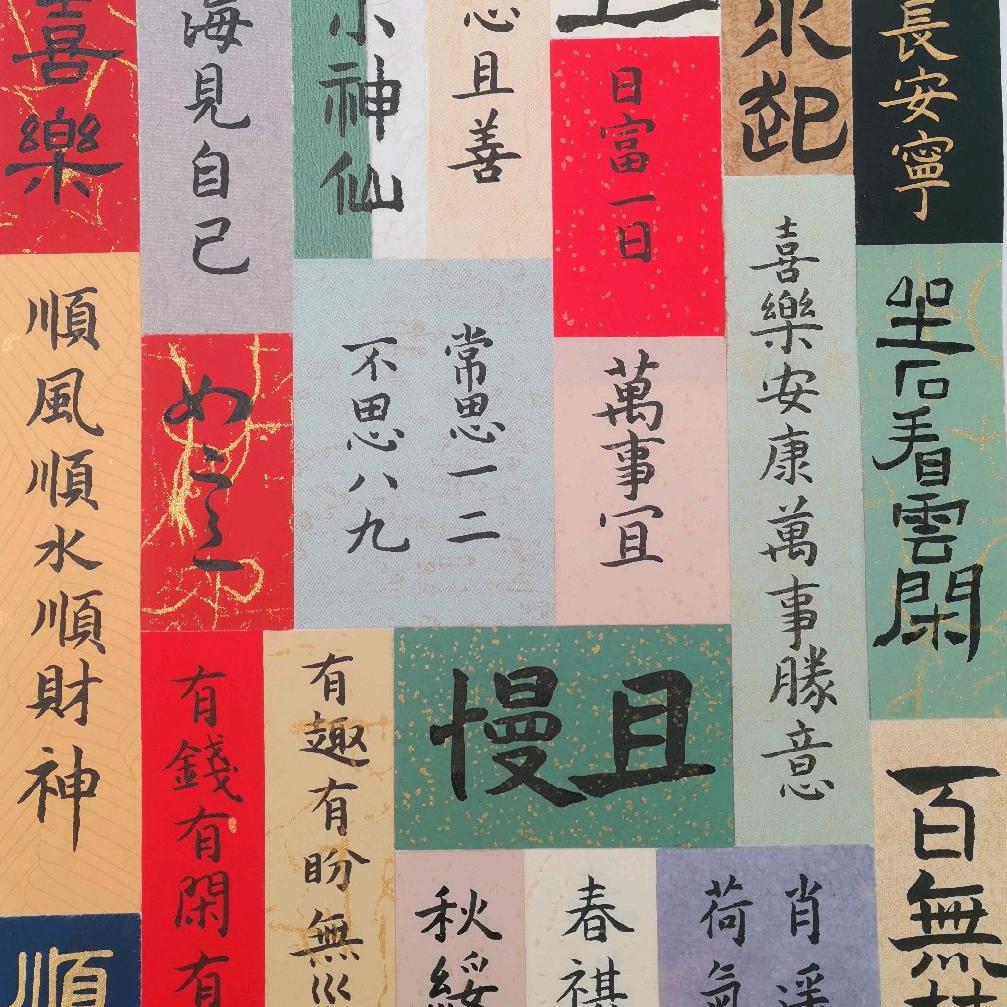 喜樂
海見自己
小神仙
且善
日富一日
起
長安寧
順風順水順財神
常思一二
不思八九
萬事宜
喜樂安康萬事勝意
坐石看雲閑
有錢有閑有
有趣有盼無
且慢
百無
順
秋綏
春祺
肖遥
荷氣